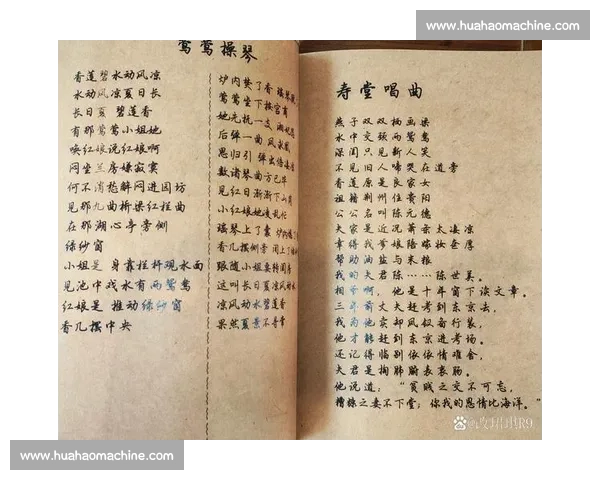 www.huahaomachine.com
莺莺操琴
香莲碧水动风凉
水动风凉夏日长
长日夏 碧莲香
有那莺莺小姐她
唤红娘说红娘啊
闷坐兰房嫌寂寞
何不消愁解闷进园坊
见那九曲桥梁红栏曲
在那湖心亭旁侧
绿纱窗
小姐是 身靠栏杆观水面
见池中戏水有两鸳鸯
红娘是 推动绿纱窗
香几摆中央
炉内焚了香
莺莺坐下
她先抚一
后弹一曲
思归引
数诸琴曲
见红日渐渐下山
小红娘她
瑶琴上了囊
香几摆侧旁
跟随小姐
这叫长日夏
凉风动水碧莲香
果然夏景不寻常
寿堂唱曲
燕子双双栖画梁
水中交颈两鸳鸯
深闺只见新人笑
不见旧人啼哭在道旁
香莲原是良家女
祖籍荆州住贵阳
公公名叫陈元德
大家是近况萧条太凄凉
幸得我爹娘陪嫁妆奁厚
帮助油盐与米粮
我的夫君陈……陈世美。
相爷啊，他是十年窗下读文章。
三年前丈夫赶考到东京去，
我为他卖却凤钗备行装，
他才能赶到东京进考场。
还记得临别依依情难舍，
夫君是掏肺腑表衷肠。
他说道：“贫贱之交不可忘，
糟糠之妻不下堂；你我的恩情比海洋。”
www.huahaomachine.com